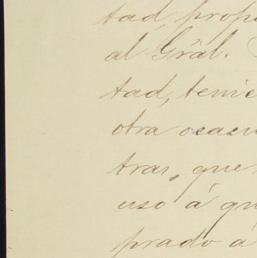 tad, propo
al Grãl.
tad, tenie
otra ocasi
tras, que
uso á qu
prado á